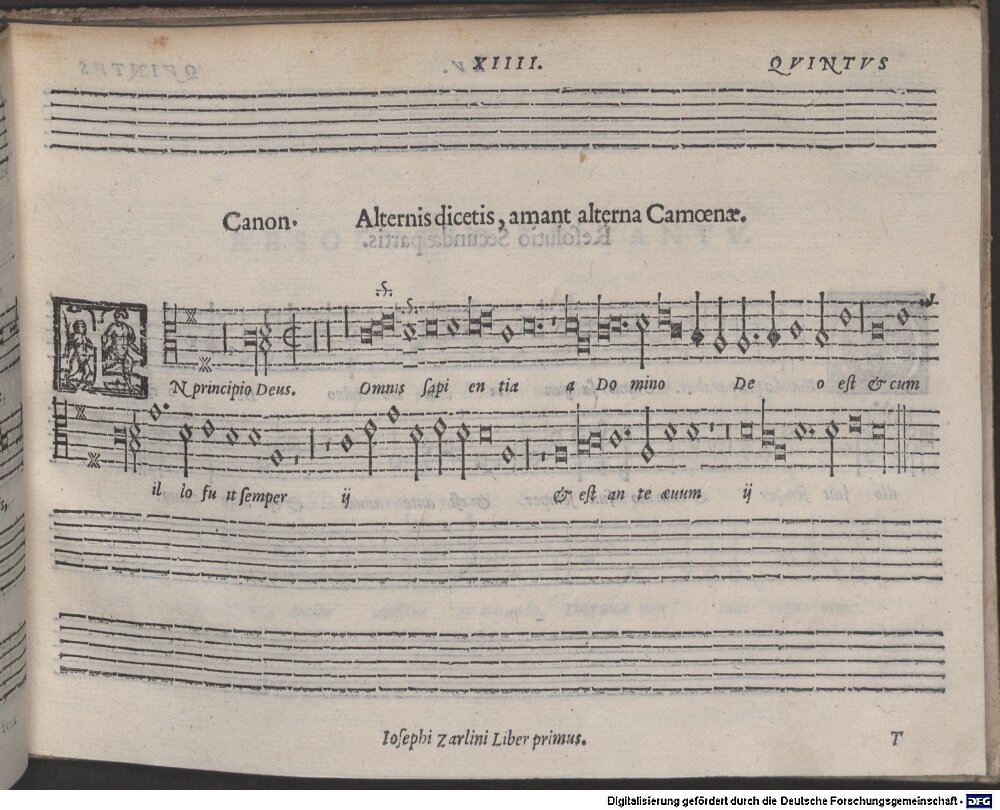 XIIII. QVINTVS
Canon. Alternis dicetis, amant alterna Camœnæ.
IN principio Deus. Omnis sapi en tia a Do mino De o est & cum
il lo fu it semper ij & est an te æuum ij
Iosephi Zarlini Liber primus. T
Digitalisierung gefördert durch die Deutsche Forschungsgemeinschaft - DFG